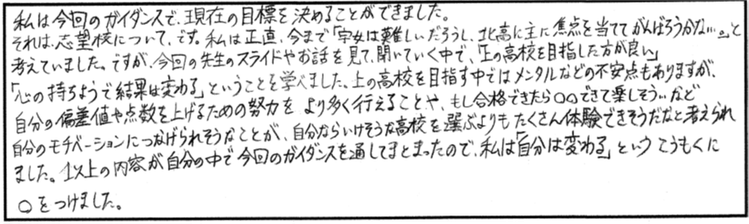 私は今回のガイダンスで、現在の目標を決めることができました。
それは、志望校について、です。私は正直、今まで「宇女は難しいだろうし、北高に主に焦点を当ててがんばろうかな…。」と
考えていました。ですが、今回の先生のスライドやお話を見て、聞いていく中で、「上の高校を目指した方が良い」
「心の持ちようで結果は変わる」ということを学べました。上の高校を目指す中ではメンタルなどの不安点もありますが、
自分の偏差値や点数を上げるための努力を より多く行えることや、もし合格できたら〇〇できて楽しそう…など
自分のモチベーションにつなげられそうなことが、自分ならいけそうな高校を選ぶよりもたくさん体験できそうだなと考えられ
ました。以上の内容が自分の中で今回のガイダンスを通してまとまったので、私は「自分は変わる」というこうもくに
〇をつけました。